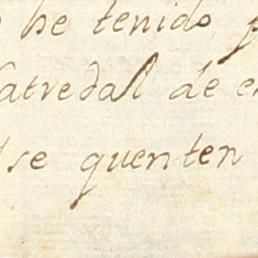 he tenido
Catredal de
se quenten